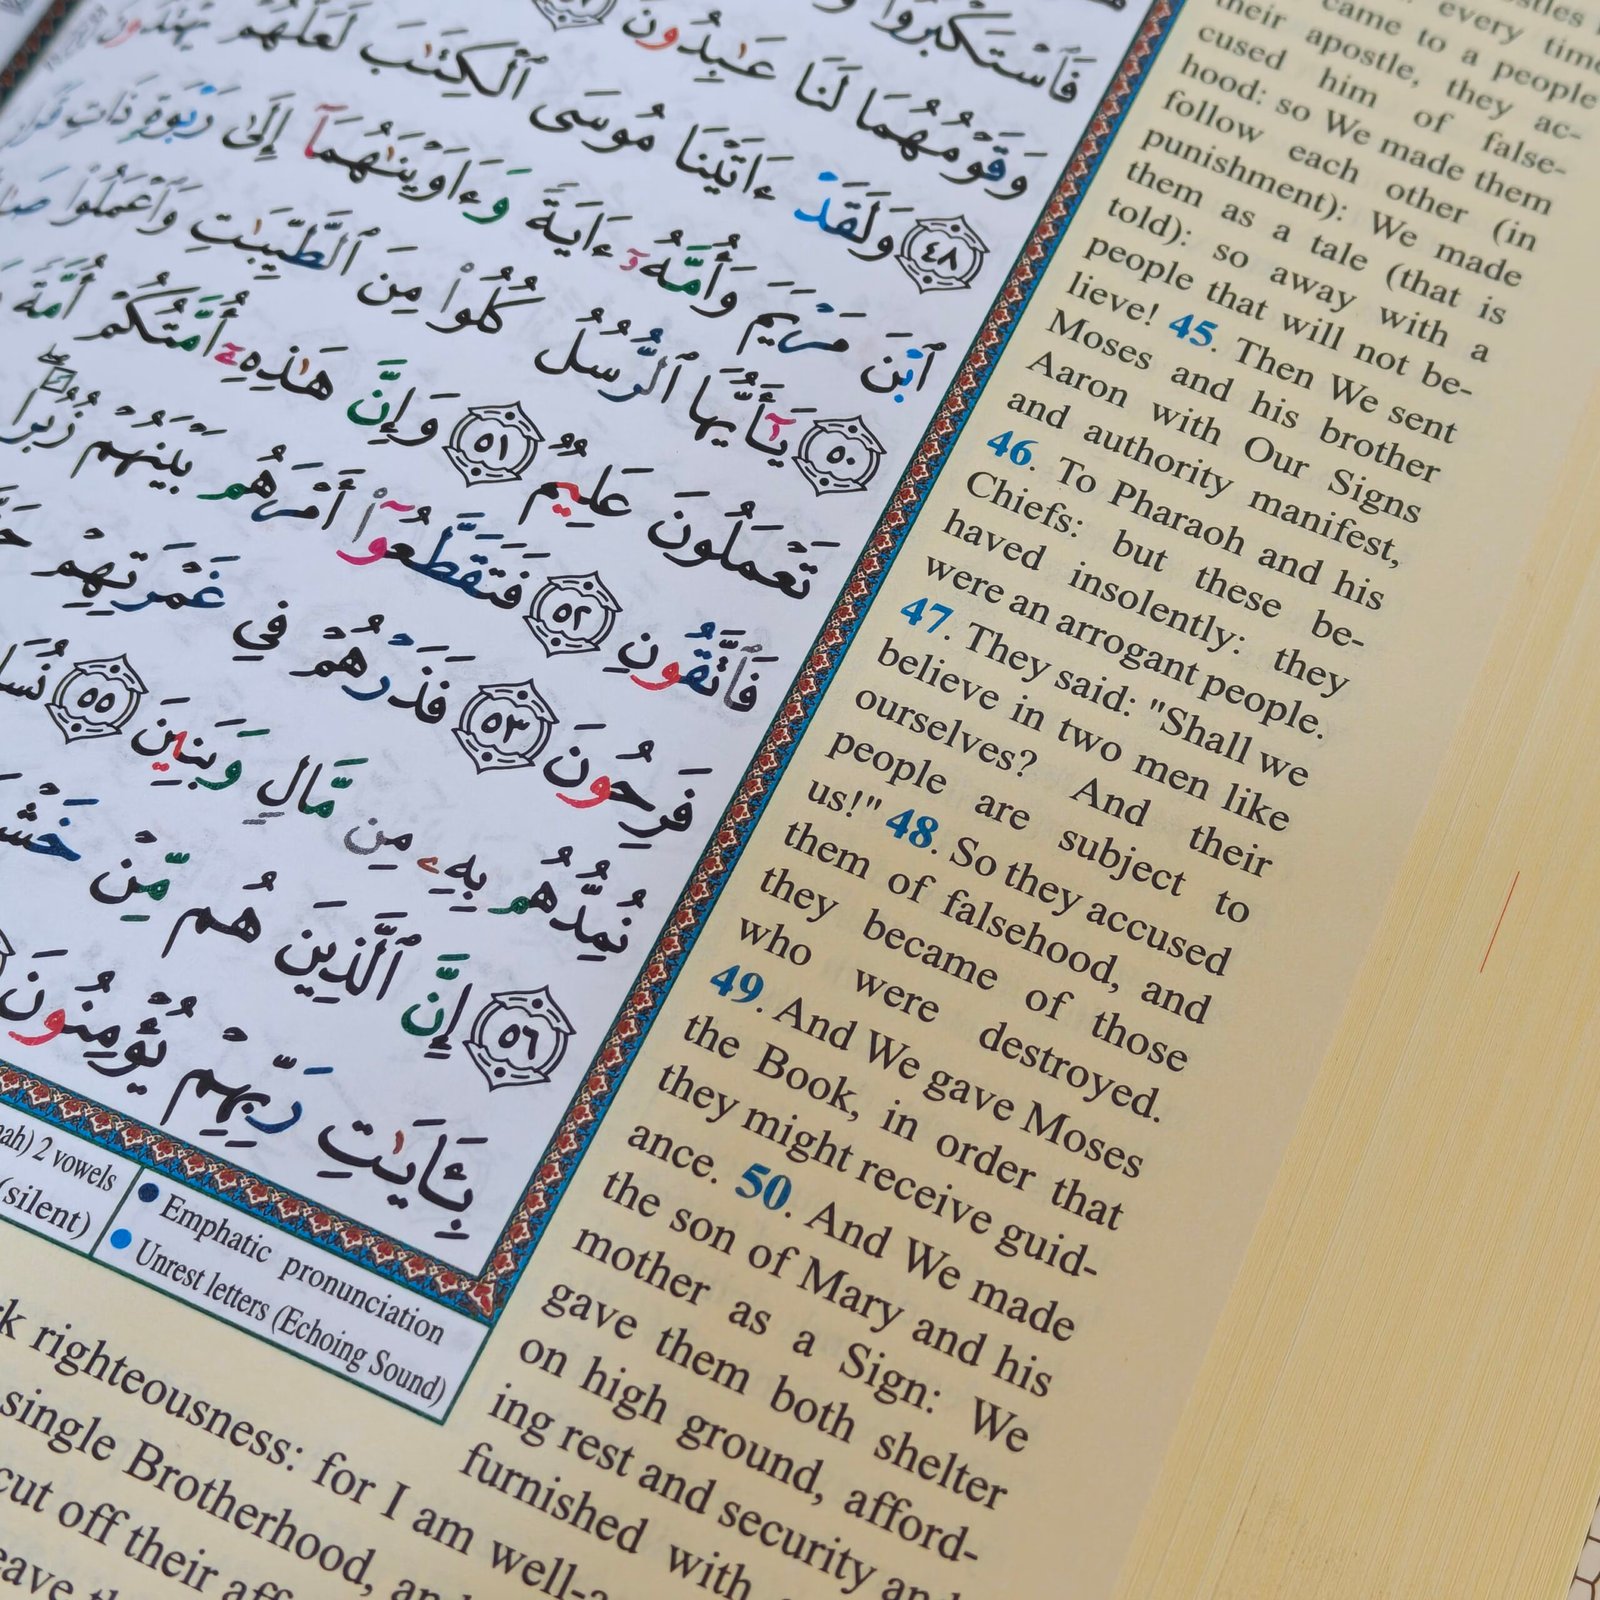 فَٱسْتَكْبَرُوا۟
وَقَوْمُهُمَا لَنَا عَـٰبِدُونَ
٤٨ وَلَقَدْ ءَاتَيْنَا مُوسَى ٱلْكِتَـٰبَ لَعَلَّهُمْ يَهْتَدُونَ
ٱبْنَ مَرْيَمَ وَأُمَّهُۥٓ ءَايَةً وَءَاوَيْنَـٰهُمَآ إِلَىٰ رَبْوَةٍ ذَاتِ
٥٠ يَـٰٓأَيُّهَا ٱلرُّسُلُ كُلُوا۟ مِنَ ٱلطَّيِّبَـٰتِ وَٱعْمَلُوا۟
تَعْمَلُونَ عَلِيمٌ ٥١ وَإِنَّ هَـٰذِهِۦٓ أُمَّتُكُمْ أُمَّةً
فَٱتَّقُونِ ٥٢ فَتَقَطَّعُوٓا۟ أَمْرَهُم بَيْنَهُمْ زُبُرًا
فَرِحُونَ ٥٣ فَذَرْهُمْ فِي غَمْرَتِهِمْ
نُمِدُّهُم بِهِۦ مِن مَّالٍ وَبَنِينَ ٥٥ نُسَا
٥٦ إِنَّ ٱلَّذِينَ هُم مِّنْ خَشْ
بِـَٔايَـٰتِ رَبِّهِمْ يُؤْمِنُونَ
nah) 2 vowels
(silent)
Emphatic pronunciation
Unrest letters (Echoing Sound)
every time
came to a people
their apostle, they ac-
cused him of false-
hood: so We made them
follow each other (in
punishment): We made
them as a tale (that is
told): so away with a
people that will not be-
lieve! 45. Then We sent
Moses and his brother
Aaron with Our Signs
and authority manifest,
46. To Pharaoh and his
Chiefs: but these be-
haved insolently: they
were an arrogant people.
47. They said: "Shall we
believe in two men like
ourselves? And their
people are subject to
us!" 48. So they accused
them of falsehood, and
they became of those
who were destroyed.
49. And We gave Moses
the Book, in order that
they might receive guid-
ance. 50. And We made
the son of Mary and his
mother as a Sign: We
gave them both shelter
on high ground, afford-
ing rest and security and
furnished with
rk righteousness: for I am well-a
single Brotherhood, and
cut off their aff